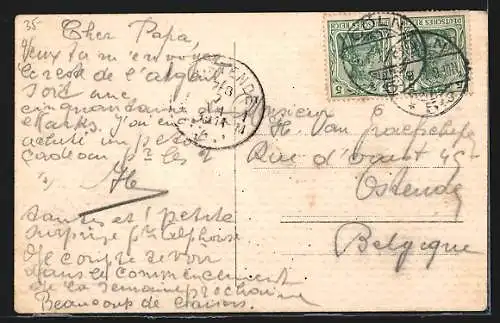 35-
Cher Papa,
Veux tu m'envoyer
le reste de l'argent
soit une
cinquantaine de
Marks. J'ai encore
acheté un petit
cadeau pr les 2
santes et 1 petite
surprise pr Alphonse
Je compte revenir
dans le commencement
de la semaine prochaine
Beaucoup de baisers.
DEUTSCHES REICH
5
CÖLN
OSTENDE
Monsieur
H. Van
Rue d'Ouest 45
Ostende
Belgique